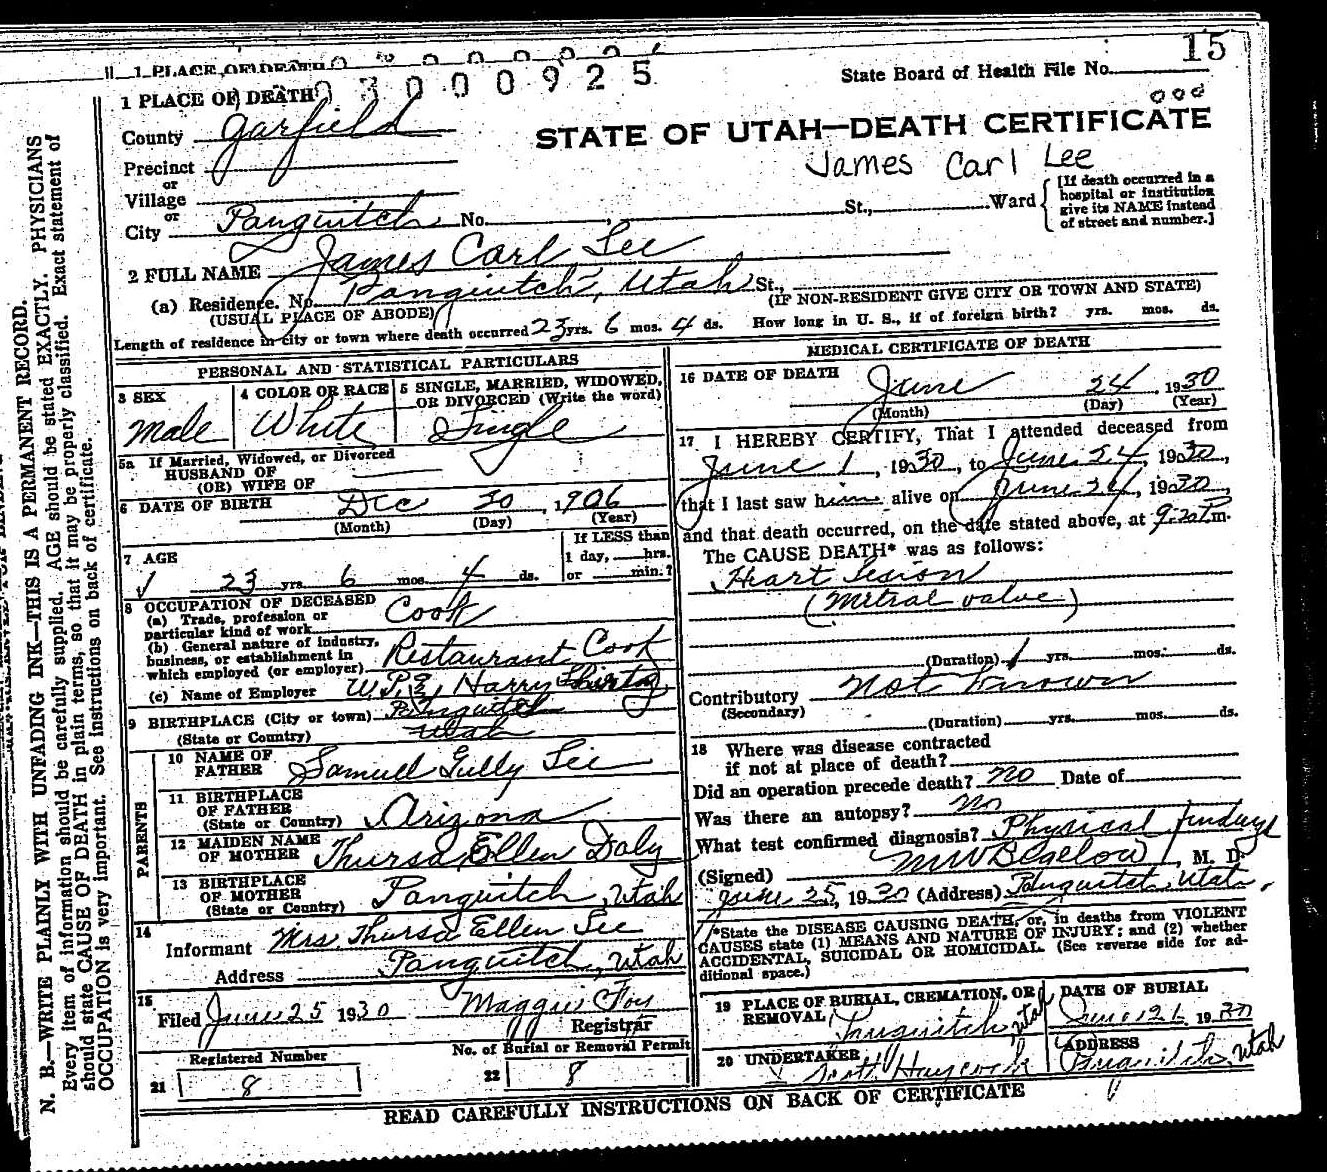 1 PLACE OF DEATH
15
State Board of Health File No.
3000925
1 PLACE OF DEATH
County Garfield
STATE OF UTAH—DEATH CERTIFICATE
James Carl Lee
Precinct
or
Village
or
City Panguitch No. St., Ward
[If death occurred in a
hospital or institution
give its NAME instead
of street and number.]
2 FULL NAME James Carl Lee
(a) Residence. No. Panguitch, Utah St.,
(USUAL PLACE OF ABODE)
(IF NON-RESIDENT GIVE CITY OR TOWN AND STATE)
Length of residence in city or town where death occurred 23 yrs. 6 mos. 4 ds. How long in U. S., if of foreign birth? yrs. mos. ds.
PERSONAL AND STATISTICAL PARTICULARS
3 SEX
Male
4 COLOR OR RACE
White
5 SINGLE, MARRIED, WIDOWED,
OR DIVORCED (Write the word)
Single
5a If Married, Widowed, or Divorced
HUSBAND OF
(OR) WIFE OF
6 DATE OF BIRTH Dec 20, 1906
(Month) (Day) (Year)
7 AGE
23 yrs. 6 mos. 4 ds.
If LESS than
1 day, hrs.
or min.?
8 OCCUPATION OF DECEASED
(a) Trade, profession or
particular kind of work Cook
(b) General nature of industry,
business, or establishment in
which employed (or employer) Restaurant Cook
(c) Name of Employer Harry
9 BIRTHPLACE (City or town) Panguitch
(State or Country) Utah
PARENTS
10 NAME OF
FATHER Samuel Gully Lee
11 BIRTHPLACE
OF FATHER
(State or Country) Arizona
12 MAIDEN NAME
OF MOTHER Thursa Ellen Daly
13 BIRTHPLACE
OF MOTHER
(State or Country) Panguitch, Utah
14
Informant Mrs. Thursa Ellen Lee
Address Panguitch, Utah
15
Filed June 25 1930 Maggie Foy
Registrar
Registered Number
21 8
No. of Burial or Removal Permit
22 8
MEDICAL CERTIFICATE OF DEATH
16 DATE OF DEATH June 24, 1930
(Month) (Day) (Year)
17 I HEREBY CERTIFY, That I attended deceased from
June 1, 1930, to June 24, 1930,
that I last saw him alive on June 24, 1930,
and that death occurred, on the date stated above, at 9:20 P.m.
The CAUSE DEATH* was as follows:
Heart Lesion
(Mitral valve)
(Duration) 1 yrs. mos. ds.
Contributory Not Known
(Secondary)
(Duration) yrs. mos. ds.
18 Where was disease contracted
if not at place of death?
Did an operation precede death? No Date of
Was there an autopsy? No
What test confirmed diagnosis? Physical findings
(Signed) M W Bigelow, M. D.
June 25, 1930 (Address) Panguitch, Utah.
*State the DISEASE CAUSING DEATH, or, in deaths from VIOLENT
CAUSES state (1) MEANS AND NATURE OF INJURY; and (2) whether
ACCIDENTAL, SUICIDAL OR HOMICIDAL. (See reverse side for ad-
ditional space.)
19 PLACE OF BURIAL, CREMATION, OR
REMOVAL Panguitch Utah
DATE OF BURIAL
June 26, 1930
20 UNDERTAKER
Scott Haycock
ADDRESS
Panguitch, Utah
READ CAREFULLY INSTRUCTIONS ON BACK OF CERTIFICATE
N. B.—WRITE PLAINLY WITH UNFADING INK—THIS IS A PERMANENT RECORD.
Every item of information should be carefully supplied. AGE should be stated EXACTLY. PHYSICIANS
should state CAUSE OF DEATH in plain terms, so that it may be properly classified. Exact statement of
OCCUPATION is very important. See instructions on back of certificate.